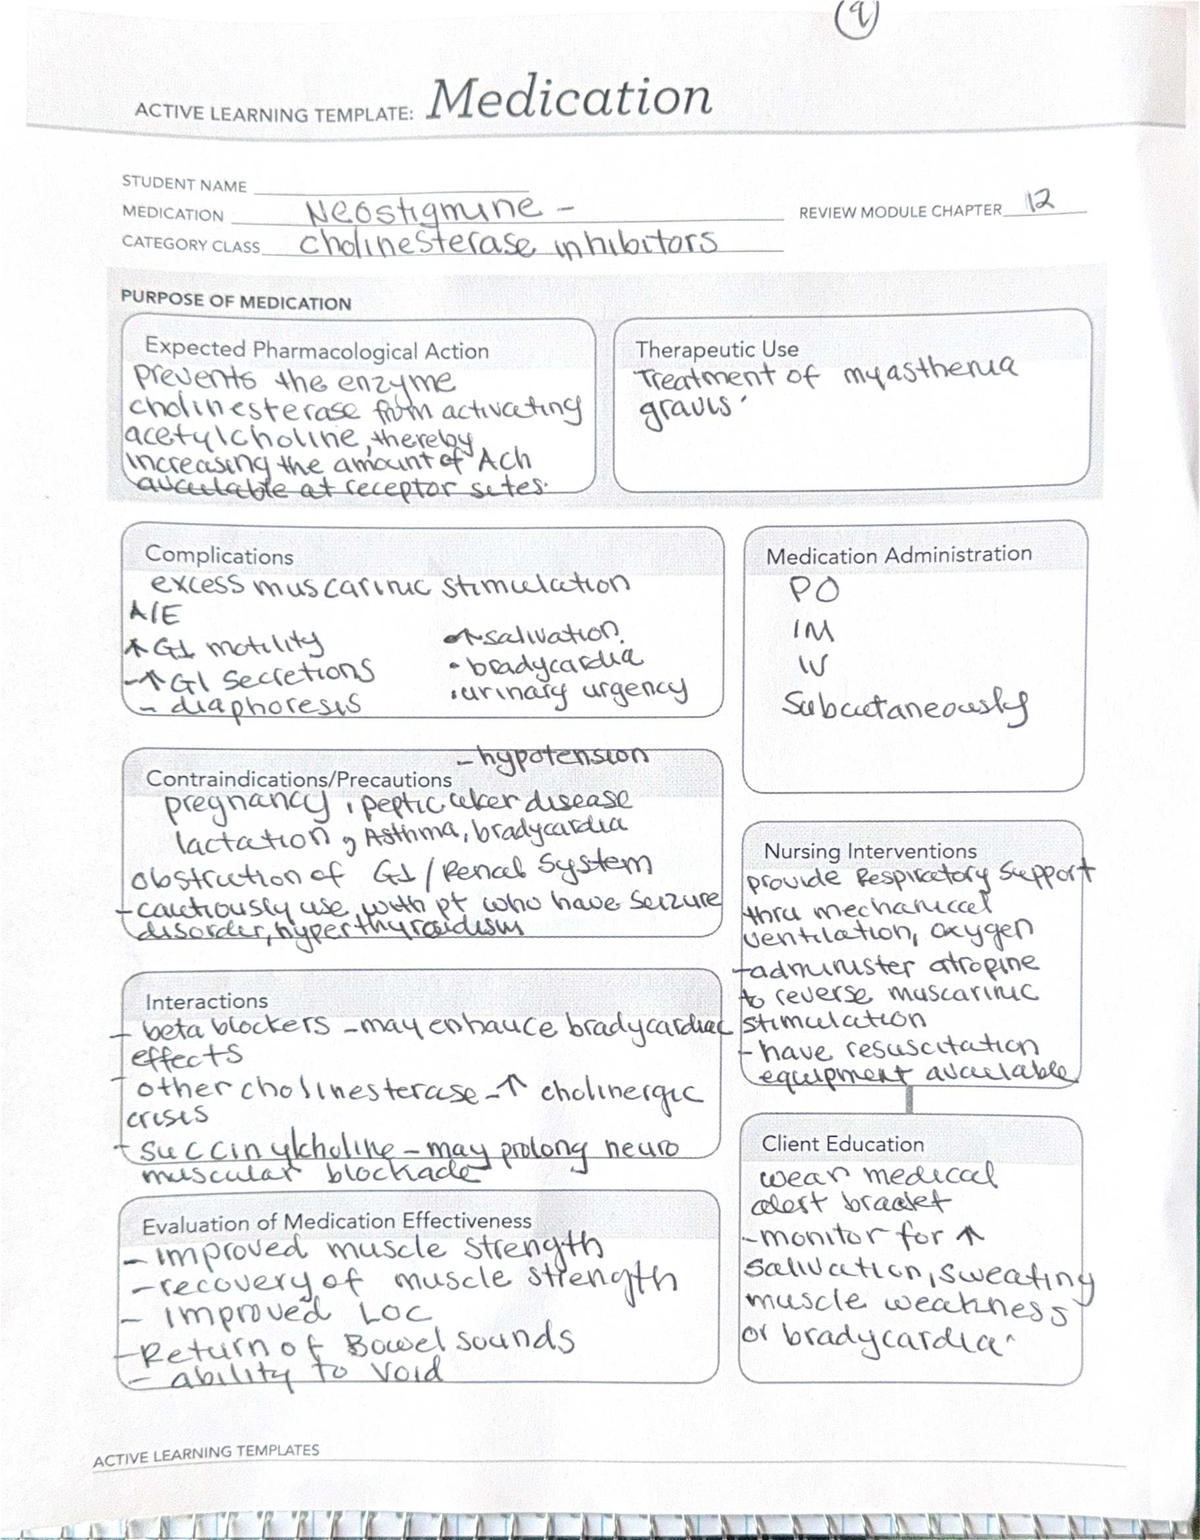 9
ACTIVE LEARNING TEMPLATE: Medication
STUDENT NAME
MEDICATION Neostigmine -
REVIEW MODULE CHAPTER 12
CATEGORY CLASS cholinesterase inhibitors
PURPOSE OF MEDICATION
Expected Pharmacological Action
prevents the enzyme
cholinesterase from activating
acetylcholine, thereby
increasing the amount of Ach
available at receptor sites.
Therapeutic Use
Treatment of myasthenia
gravis.
Complications
excess muscarinic stimulation
A/E
↑ GI motility
-↑ GI secretions
- diaphoresis
↑ salivation.
• bradycardia
• urinary urgency
- hypotension
Medication Administration
PO
IM
IV
Subcutaneously
Contraindications/Precautions
pregnancy, peptic ulcer disease
lactation, Asthma, bradycardia
obstruction of GI / Renal System
- cautiously use with pt who have seizure
disorder, hyperthyroidism
Nursing Interventions
provide Respiratory support
thru mechanical
ventilation, oxygen
- administer atropine
to reverse muscarinic
stimulation
- have resuscitation
equipment available
Interactions
- beta blockers - may enhance bradycardiac
effects
- other cholinesterase - ↑ cholinergic
crisis
- succinylcholine - may prolong neuro
muscular blockade
Client Education
wear medical
alert bracelet
- monitor for ↑
salivation, sweating
muscle weakness
or bradycardia.
Evaluation of Medication Effectiveness
- improved muscle strength
- recovery of muscle strength
- improved LOC
- Return of Bowel sounds
- ability to void
ACTIVE LEARNING TEMPLATES